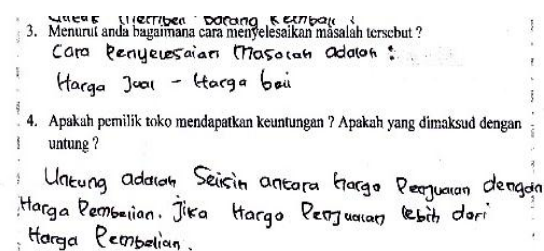 untuk membeli barang kembali.
3. Menurut anda bagaimana cara menyelesaikan masalah tersebut ?
Cara Penyelesaian Masalah adalah :
Harga Jual - Harga beli
4. Apakah pemilik toko mendapatkan keuntungan ? Apakah yang dimaksud dengan
untung ?
Untung adalah Selisin antara harga Penjualan dengan
Harga Pembelian. Jika Harga Penjualan lebih dari
Harga Pembelian.